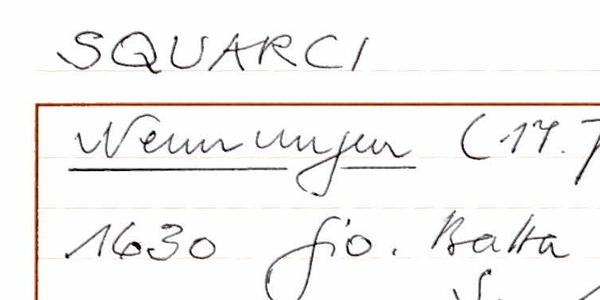 SQUARCI
Nennungen (17.
1630 Gio. Batta